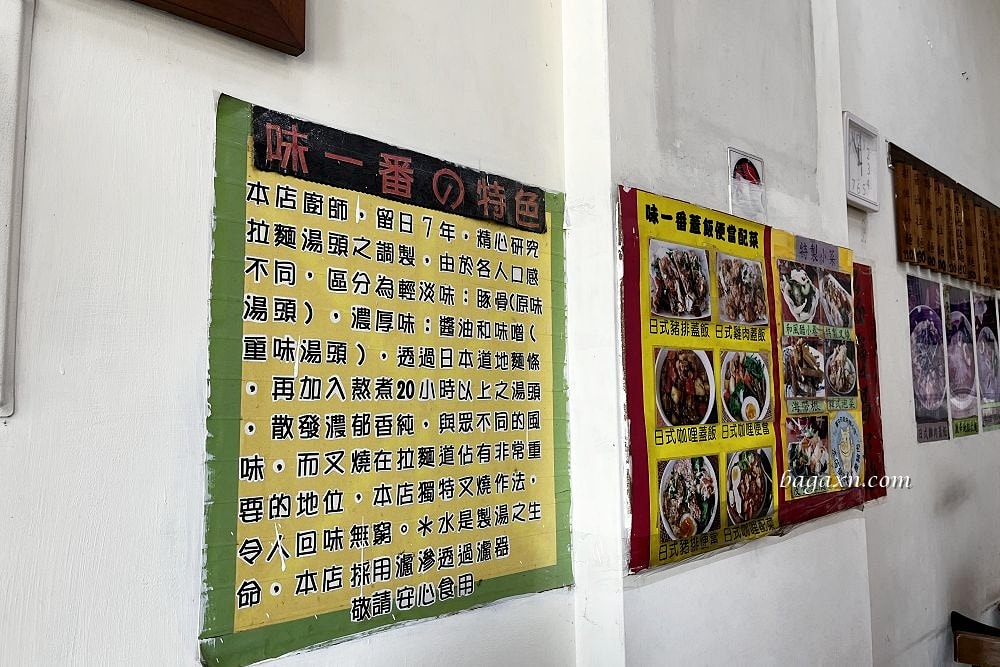 味一番の特色
本店廚師，留日7年，精心研究
拉麵湯頭之調製，由於各人口感
不同，區分為輕淡味：豚骨(原味
湯頭)，濃厚味：醬油和味噌(
重味湯頭)，透過日本道地麵條
，再加入熬煮20小時以上之湯頭
，散發濃郁香純，與眾不同的風
味，而叉燒在拉麵道佔有非常重
要的地位，本店獨特叉燒作法，
令人回味無窮。＊水是製湯之生
命，本店採用濾滲透過濾器
敬請安心食用
味一番蓋飯便當配菜
日式豬排蓋飯 日式雞肉蓋飯
日式咖哩蓋飯 日式咖哩便當
日式豬排便當 日式咖哩配菜
特製小菜
bagaxn.com